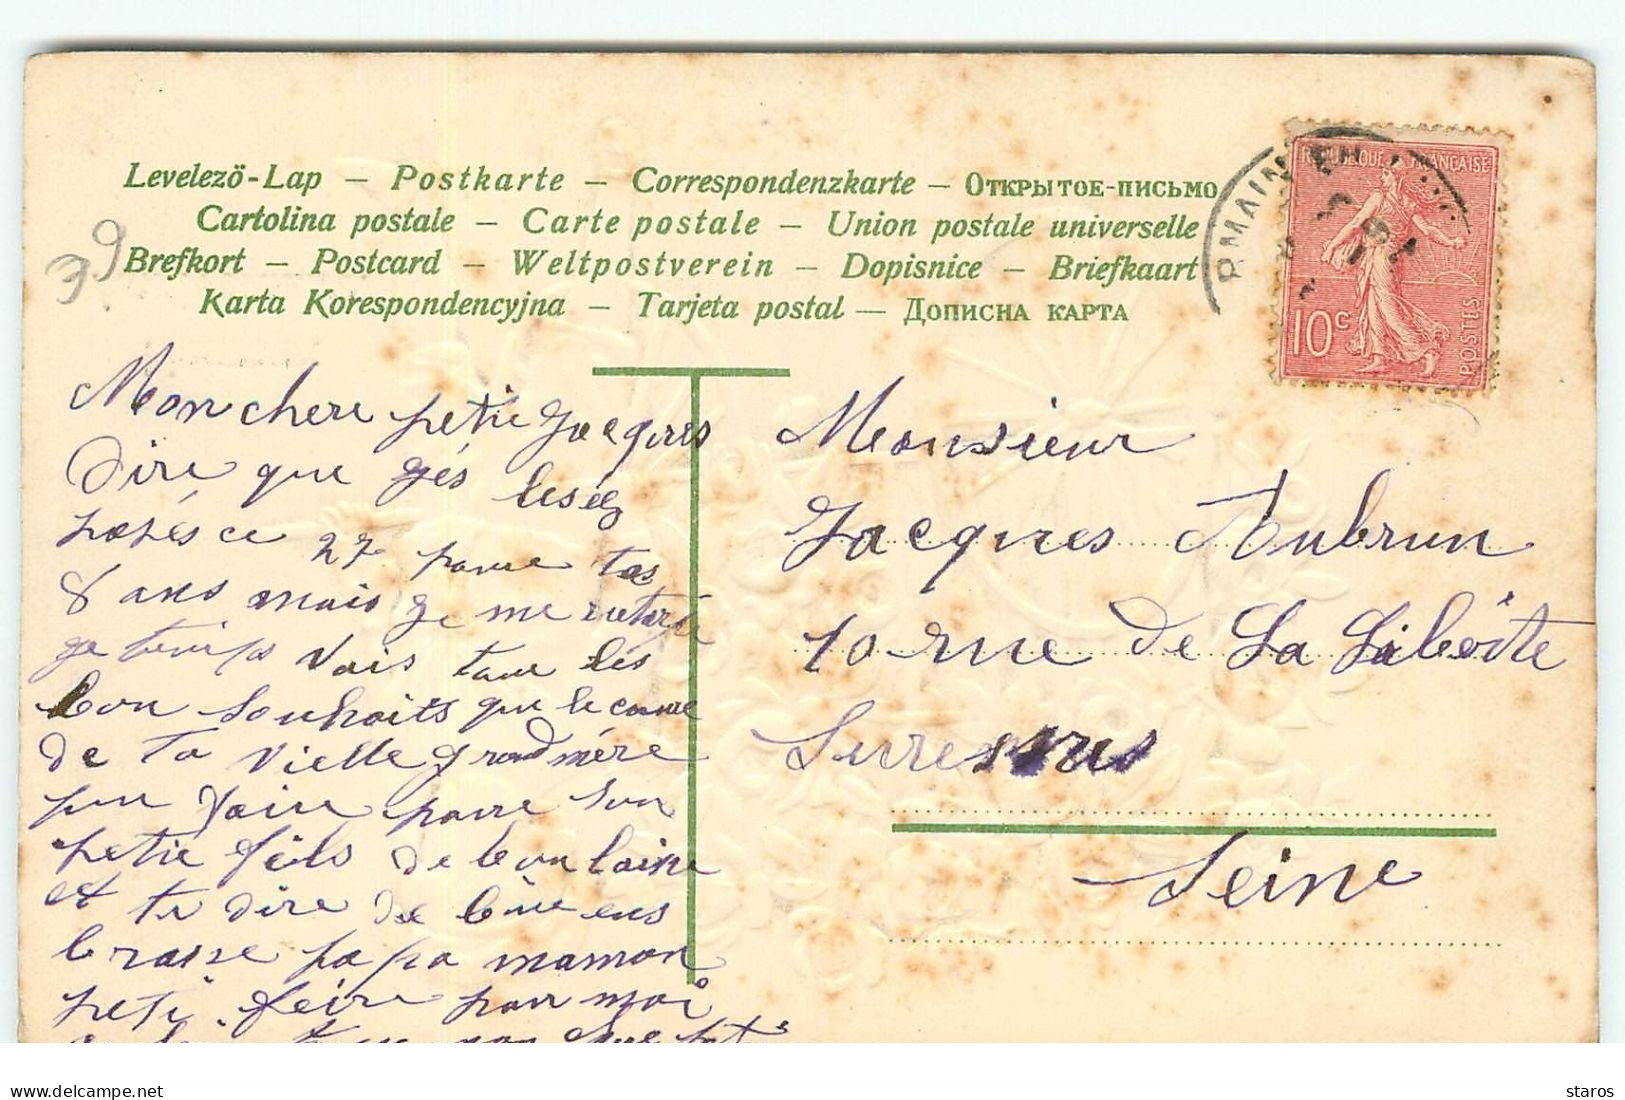 Levelezö-Lap — Postkarte — Correspondenzkarte — Открытое-письмо
Cartolina postale — Carte postale — Union postale universelle
Brefkort — Postcard — Weltpostverein — Dopisnice — Briefkaart
Karta Korespondencyjna — Tarjeta postal — Дописна карта
39
REPUBLIQUE FRANÇAISE
10c
POSTES
Mon chere petie Jacques
Dire que gés
ce 27 poure tes
8 ans mais ge me
ge Vais toue lés
bon souhaits que le
de Ta vielle grandmére
faire poure son
petie fils de bon
et te dire de bien ens
brasse papa maman
peti feire pour moi
Monsieur
Jacques Aubrun
10 rue de La Liberte
Suresnes
Seine
staros